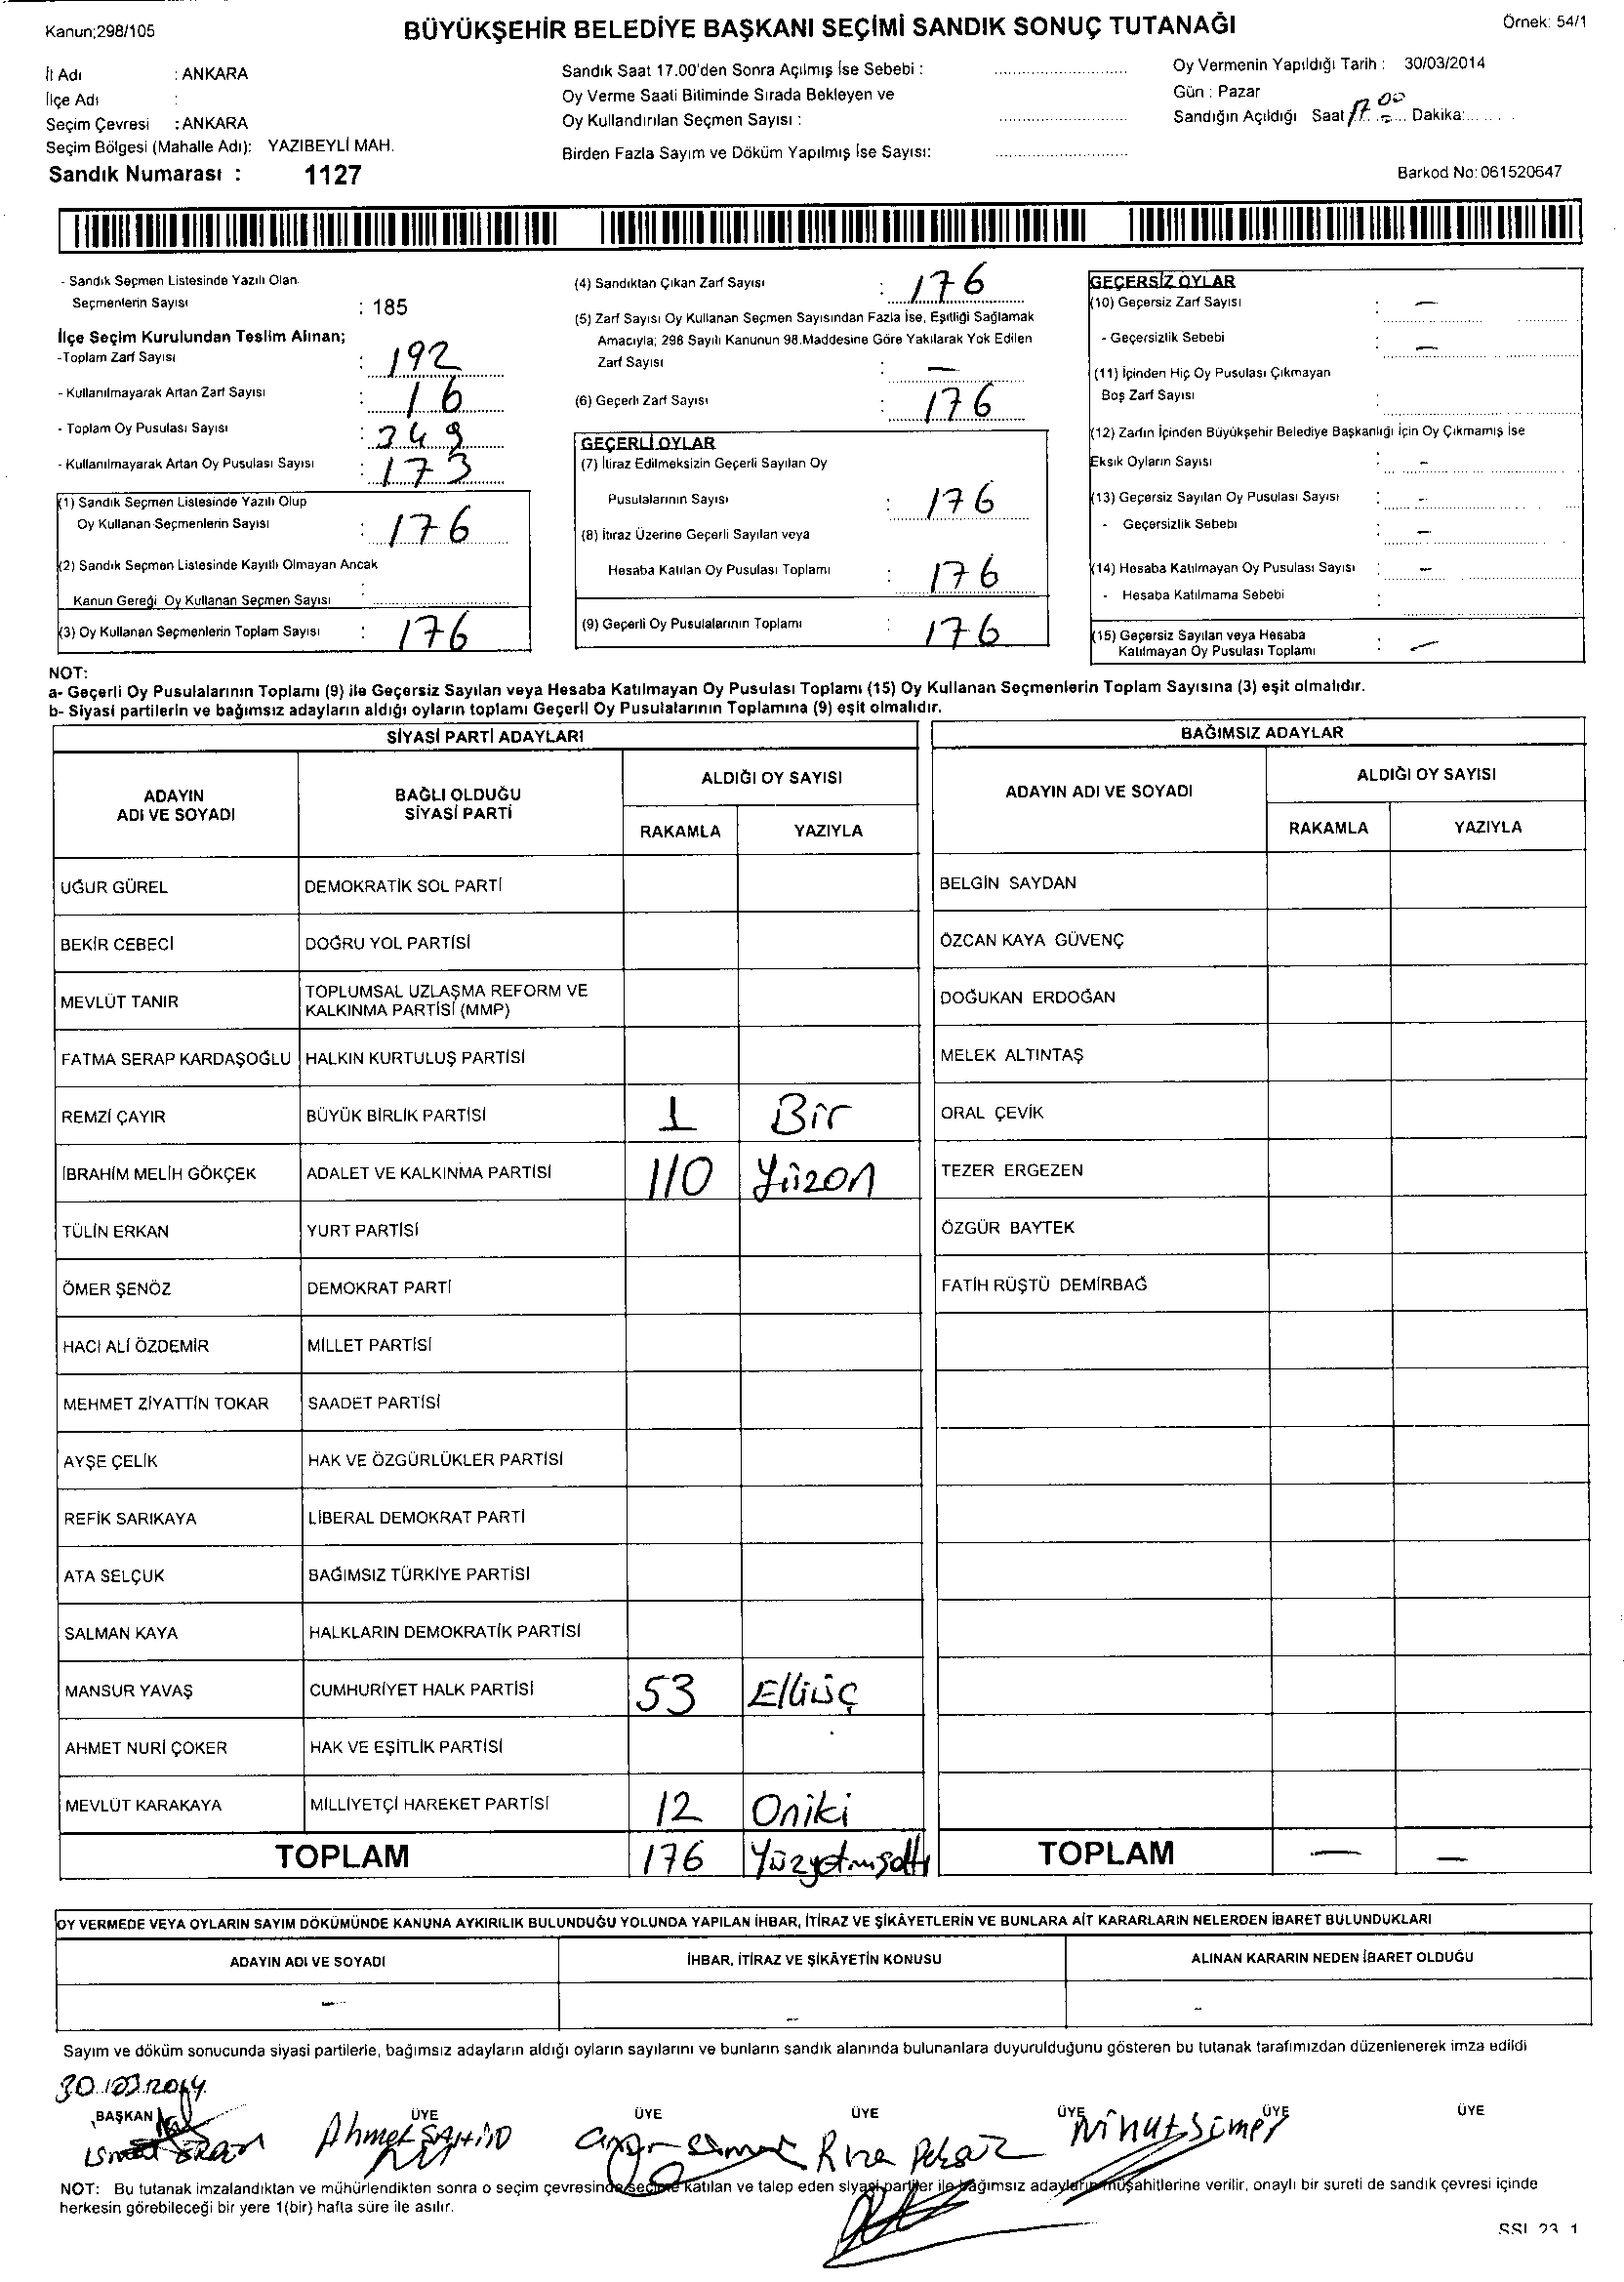 Kanun;298/105
BÜYÜKŞEHİR BELEDİYE BAŞKANI SEÇİMİ SANDIK SONUÇ TUTANAĞI
Örnek: 54/1
İl Adı : ANKARA
İlçe Adı :
Seçim Çevresi : ANKARA
Seçim Bölgesi (Mahalle Adı): YAZIBEYLİ MAH.
Sandık Numarası : 1127
Sandık Saat 17.00'den Sonra Açılmış İse Sebebi :
Oy Verme Saati Bitiminde Sırada Bekleyen ve
Oy Kullandırılan Seçmen Sayısı :
Birden Fazla Sayım ve Döküm Yapılmış İse Sayısı:
Oy Vermenin Yapıldığı Tarih : 30/03/2014
Gün : Pazar
Sandığın Açıldığı Saat 17.00 Dakika:
Barkod No: 061520647
- Sandık Seçmen Listesinde Yazılı Olan
Seçmenlerin Sayısı : 185
İlçe Seçim Kurulundan Teslim Alınan;
-Toplam Zarf Sayısı : 192
- Kullanılmayarak Artan Zarf Sayısı : 16
- Toplam Oy Pusulası Sayısı : 349
- Kullanılmayarak Artan Oy Pusulası Sayısı : 173
(1) Sandık Seçmen Listesinde Yazılı Olup
Oy Kullanan Seçmenlerin Sayısı : 176
(2) Sandık Seçmen Listesinde Kayıtlı Olmayan Ancak
Kanun Gereği Oy Kullanan Seçmen Sayısı :
(3) Oy Kullanan Seçmenlerin Toplam Sayısı : 176
(4) Sandıktan Çıkan Zarf Sayısı : 176
(5) Zarf Sayısı Oy Kullanan Seçmen Sayısından Fazla İse, Eşitliği Sağlamak
Amacıyla; 298 Sayılı Kanunun 98.Maddesine Göre Yakılarak Yok Edilen
Zarf Sayısı : —
(6) Geçerli Zarf Sayısı : 176
GEÇERLİ OYLAR
(7) İtiraz Edilmeksizin Geçerli Sayılan Oy
Pusulalarının Sayısı : 176
(8) İtiraz Üzerine Geçerli Sayılan veya
Hesaba Katılan Oy Pusulası Toplamı : 176
(9) Geçerli Oy Pusulalarının Toplamı : 176
GEÇERSİZ OYLAR
(10) Geçersiz Zarf Sayısı : —
- Geçersizlik Sebebi : —
(11) İçinden Hiç Oy Pusulası Çıkmayan
Boş Zarf Sayısı :
(12) Zarfın İçinden Büyükşehir Belediye Başkanlığı İçin Oy Çıkmamış İse
Eksik Oyların Sayısı : -
(13) Geçersiz Sayılan Oy Pusulası Sayısı : -
- Geçersizlik Sebebi : —
(14) Hesaba Katılmayan Oy Pusulası Sayısı : —
- Hesaba Katılmama Sebebi :
(15) Geçersiz Sayılan veya Hesaba
Katılmayan Oy Pusulası Toplamı : —
NOT:
a- Geçerli Oy Pusulalarının Toplamı (9) ile Geçersiz Sayılan veya Hesaba Katılmayan Oy Pusulası Toplamı (15) Oy Kullanan Seçmenlerin Toplam Sayısına (3) eşit olmalıdır.
b- Siyasi partilerin ve bağımsız adayların aldığı oyların toplamı Geçerli Oy Pusulalarının Toplamına (9) eşit olmalıdır.
SİYASİ PARTİ ADAYLARI
ADAYIN
ADI VE SOYADI
BAĞLI OLDUĞU
SİYASİ PARTİ
ALDIĞI OY SAYISI
RAKAMLA YAZIYLA
UĞUR GÜREL DEMOKRATİK SOL PARTİ
BEKİR CEBECİ DOĞRU YOL PARTİSİ
MEVLÜT TANIR TOPLUMSAL UZLAŞMA REFORM VE
KALKINMA PARTİSİ (MMP)
FATMA SERAP KARDAŞOĞLU HALKIN KURTULUŞ PARTİSİ
REMZİ ÇAYIR BÜYÜK BİRLİK PARTİSİ 1 Bir
İBRAHİM MELİH GÖKÇEK ADALET VE KALKINMA PARTİSİ 110 Yüzon
TÜLİN ERKAN YURT PARTİSİ
ÖMER ŞENÖZ DEMOKRAT PARTİ
HACI ALİ ÖZDEMİR MİLLET PARTİSİ
MEHMET ZİYATTİN TOKAR SAADET PARTİSİ
AYŞE ÇELİK HAK VE ÖZGÜRLÜKLER PARTİSİ
REFİK SARIKAYA LİBERAL DEMOKRAT PARTİ
ATA SELÇUK BAĞIMSIZ TÜRKİYE PARTİSİ
SALMAN KAYA HALKLARIN DEMOKRATİK PARTİSİ
MANSUR YAVAŞ CUMHURİYET HALK PARTİSİ 53 Elliüç
AHMET NURİ ÇOKER HAK VE EŞİTLİK PARTİSİ
MEVLÜT KARAKAYA MİLLİYETÇİ HAREKET PARTİSİ 12 Oniki
TOPLAM 176 Yüzyetmişaltı
BAĞIMSIZ ADAYLAR
ADAYIN ADI VE SOYADI
ALDIĞI OY SAYISI
RAKAMLA YAZIYLA
BELGİN SAYDAN
ÖZCAN KAYA GÜVENÇ
DOĞUKAN ERDOĞAN
MELEK ALTINTAŞ
ORAL ÇEVİK
TEZER ERGEZEN
ÖZGÜR BAYTEK
FATİH RÜŞTÜ DEMİRBAĞ
TOPLAM — —
OY VERMEDE VEYA OYLARIN SAYIM DÖKÜMÜNDE KANUNA AYKIRILIK BULUNDUĞU YOLUNDA YAPILAN İHBAR, İTİRAZ VE ŞİKÂYETLERİN VE BUNLARA AİT KARARLARIN NELERDEN İBARET BULUNDUKLARI
ADAYIN ADI VE SOYADI İHBAR, İTİRAZ VE ŞİKÂYETİN KONUSU ALINAN KARARIN NEDEN İBARET OLDUĞU
— — -
Sayım ve döküm sonucunda siyasi partilerle, bağımsız adayların aldığı oyların sayılarını ve bunların sandık alanında bulunanlara duyurulduğunu gösteren bu tutanak tarafımızdan düzenlenerek imza edildi
30.03.2014
BAŞKAN ÜYE ÜYE ÜYE ÜYE ÜYE ÜYE
Ahmet ŞAHİN Rıza
NOT: Bu tutanak imzalandıktan ve mühürlendikten sonra o seçim çevresinde seçime katılan ve talep eden siyasi partiler ile bağımsız adayların müşahitlerine verilir, onaylı bir sureti de sandık çevresi içinde
herkesin görebileceği bir yere 1(bir) hafta süre ile asılır.